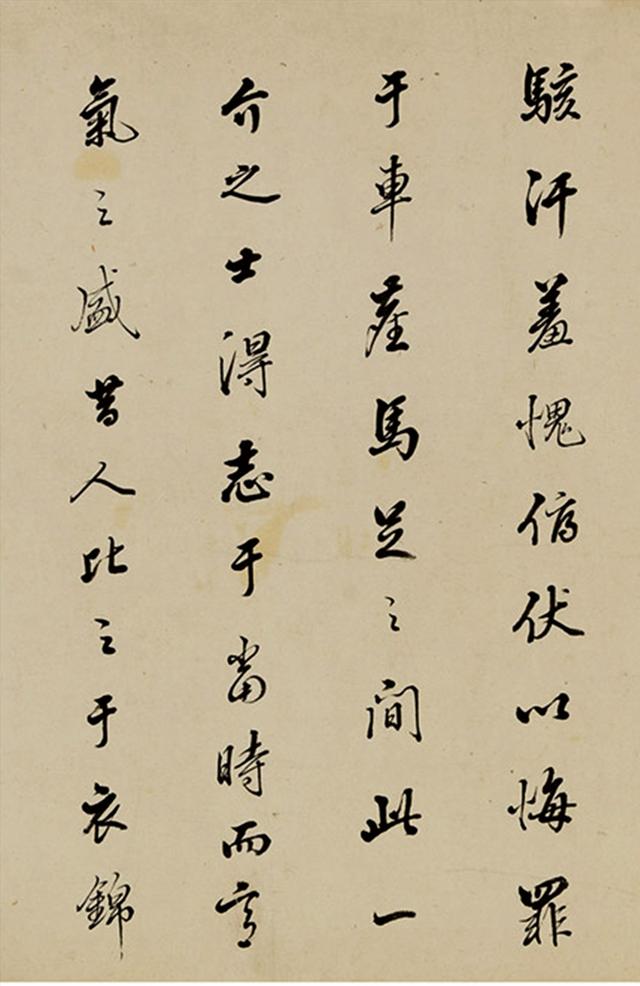 駭汗羞愧俯伏以悔罪
于車塵馬足之間此一
介之士得志于當時而意
氣之盛昔人比之于衣錦